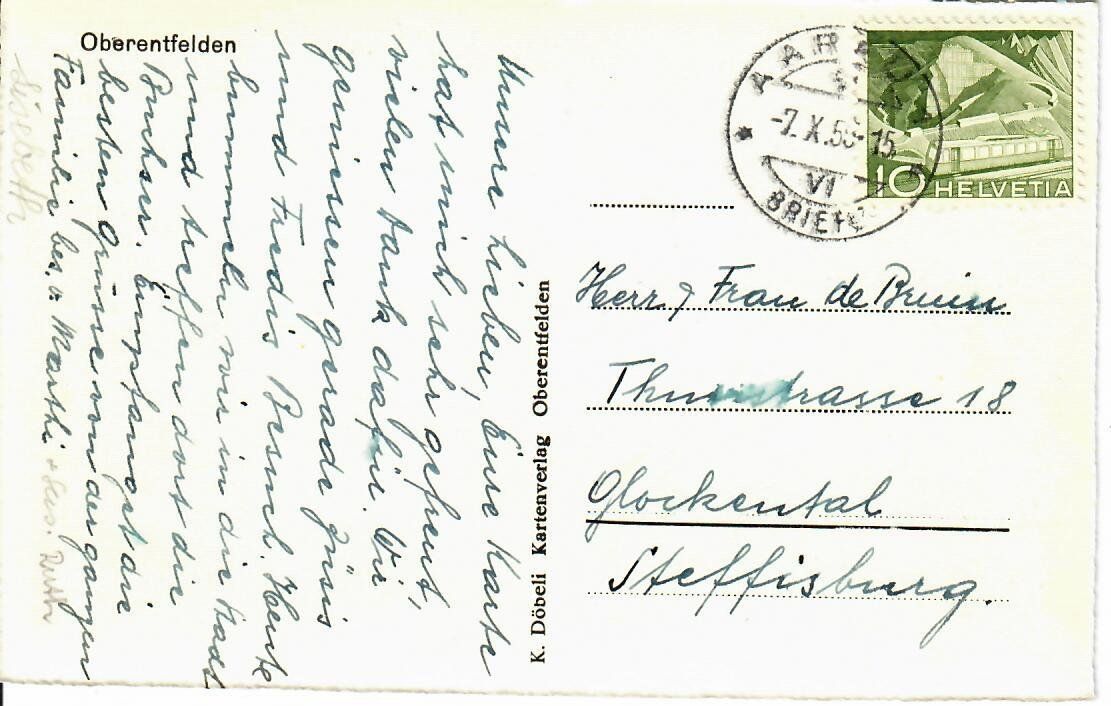 Oberentfelden
Unsere Lieben, Eure Karte
hat mich sehr gefreut,
vielen Dank dafür. Wir
geniessen gerade Jrisis
und Fredis Besuch. Heute
bummeln wir in die Stadt
und treffen dort die
Buchser. Empfanget die
besten Grüsse von der ganzen
Familie bes. v. Marthi + Sus. Ruth
Lisebeth
K. Döbeli Kartenverlag Oberentfelden
AARAU
-7.X.5 -15
VI
BRIEF
10 HELVETIA
Herr & Frau de Bruin
Thunstrasse 18
Glockental
Steffisburg.